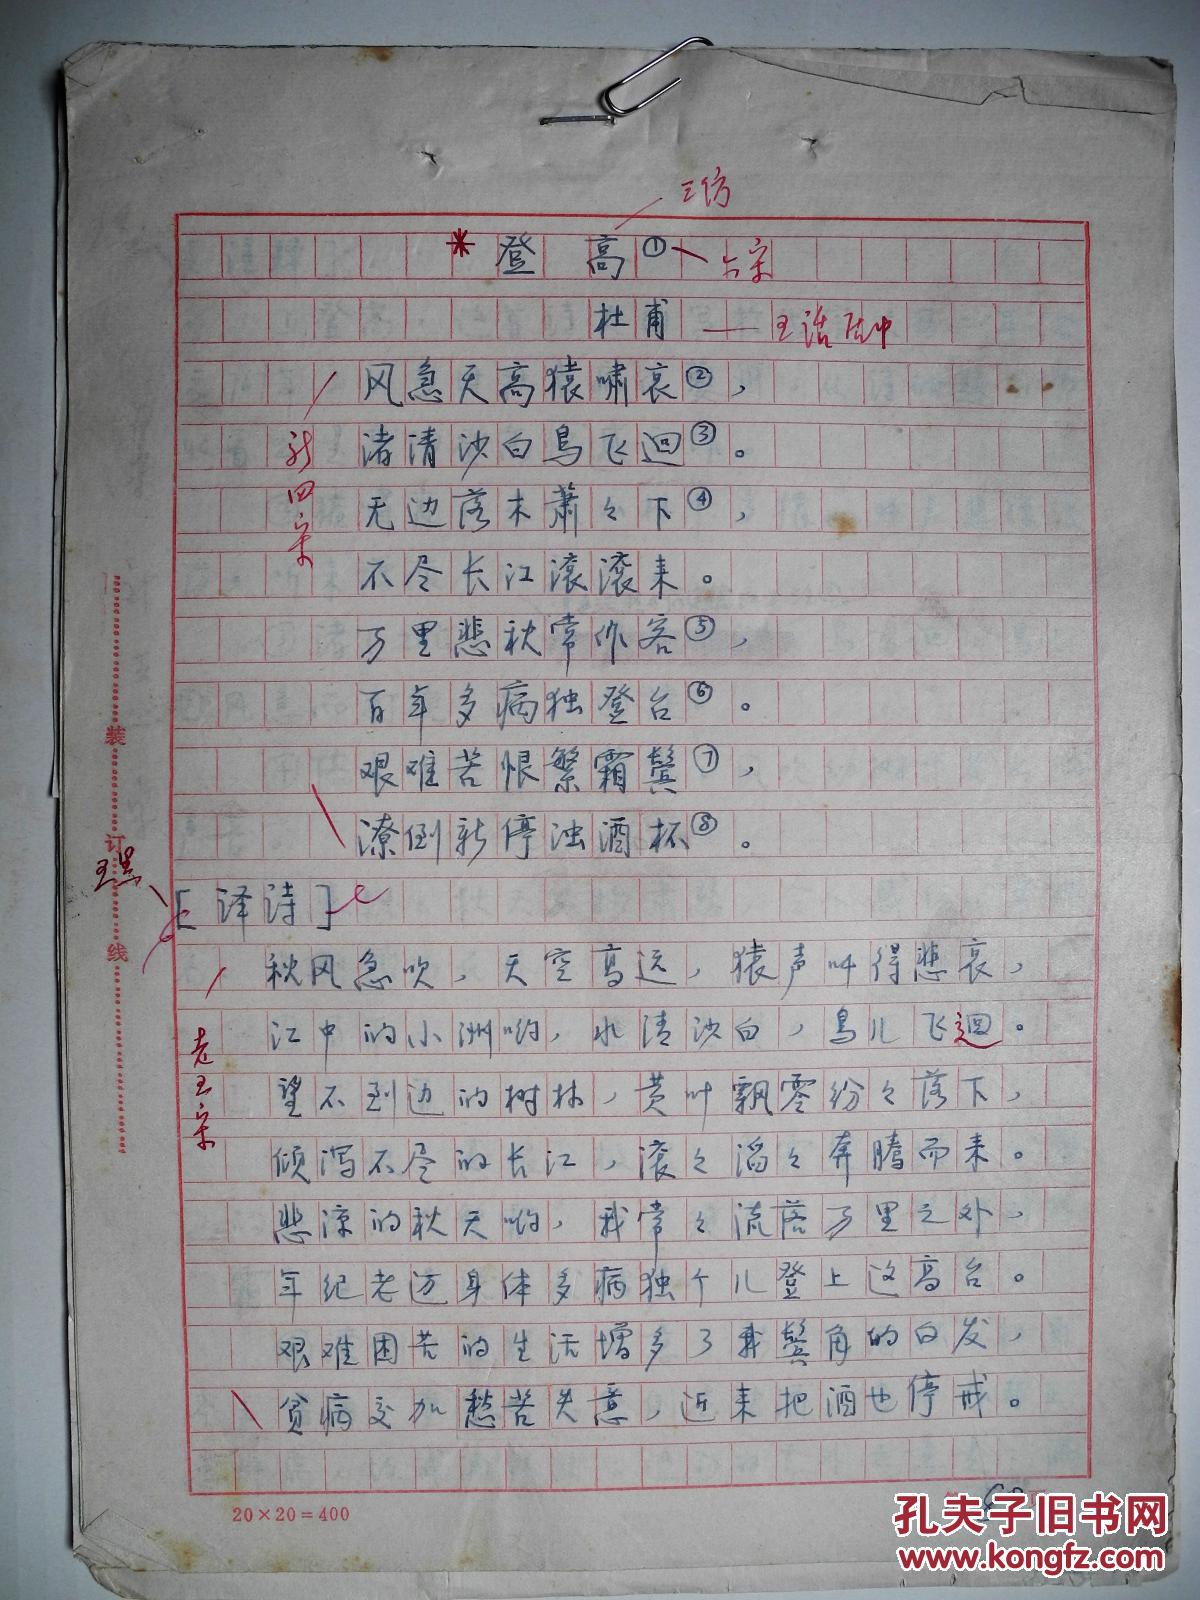 三仿
*登高①
六宋
杜甫
风急天高猿啸哀②，
渚清沙白鸟飞迴③。
新四宋
无边落木萧々下④，
不尽长江滚滚来。
万里悲秋常作客⑤，
百年多病独登台⑥。
艰难苦恨繁霜鬓⑦，
潦倒新停浊酒杯⑧。
五黑
[译诗]
秋风急吹，天空高远，猿声叫得悲哀，
江中的小洲哟，水清沙白，鸟儿飞迴。
老五宋
望不到边的树林，黄叶飘零纷々落下，
倾泻不尽的长江，滚々滔々奔腾而来。
悲凉的秋天哟，我常々流落万里之外，
年纪老迈身体多病独个儿登上这高台。
艰难困苦的生活增多了我鬓角的白发，
贫病交加愁苦失意，近来把酒也停戒。
装订线
20×20=400
孔夫子旧书网
www.kongfz.com